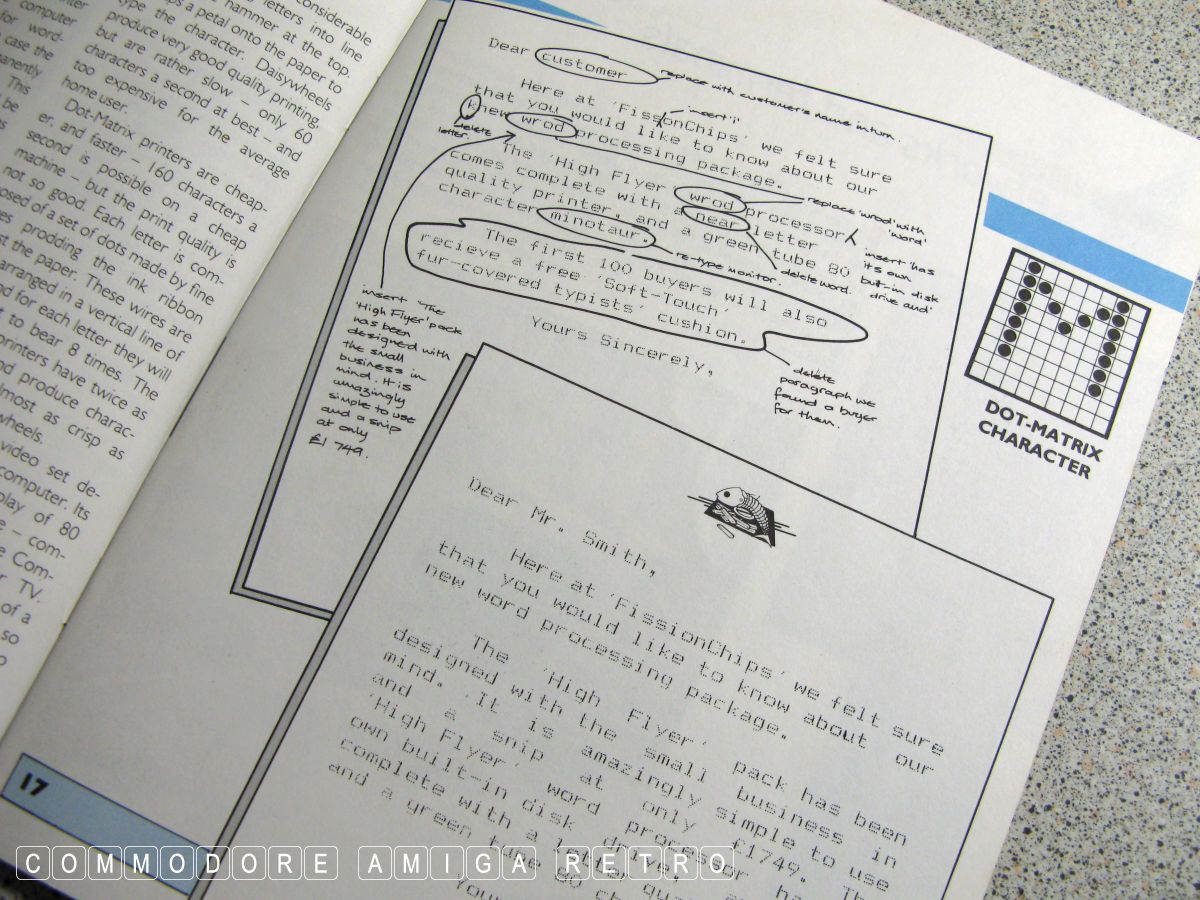 considerable
letters into line
hammer at the top.
a petal onto the paper to
type the character. Daisywheels
produce very good quality printing,
but are rather slow – only 60
characters a second at best – and
too expensive for the average
home user.
Dot-Matrix printers are cheap-
er, and faster – 160 characters a
second is possible on a cheap
machine – but the print quality is
not so good. Each letter is com-
posed of a set of dots made by fine
prodding the ink ribbon
the paper. These wires are
arranged in a vertical line of
for each letter they will
to bear 8 times. The
printers have twice as
produce charac-
almost as crisp as
wheels.
video set de-
computer. Its
play of 80
– com-
Com-
TV.
of a
so
computer
for word-
case the
This
be
17
Dear customer
replace with customer's name in turn
Here at 'FissonChips' we felt sure
insert 'i'
that you would like to know about our
knew wrod processing package.
delete
letter.
The 'High Flyer wrod processor
replace 'wrod' with
'word'
comes complete with a near letter
quality printer, and a green tube 80
character minotaur.
re-type monitor.
delete word.
insert 'has
its own
built-in disk
drive and'
The first 100 buyers will also
recieve a free 'Soft-Touch'
fur-covered typists' cushion.
Yours Sincerely,
insert 'The
'High Flyer' pack
has been
designed with
the small
business in
mind. It is
amazingly
simple to use
and a snip
at only
£1 749.
delete
paragraph we
found a buyer
for them.
DOT-MATRIX
CHARACTER
Dear Mr. Smith,
Here at 'FissionChips' we felt sure
that you would like to know about our
new word processing package.
The 'High Flyer' pack has been
designed with the small business in
mind. 'It is amazingly simple to use
and a snip at only £1749. The
'High Flyer' word processor has
own built-in disk drive,
complete with a letter
and a green tube 80
COMMODORE AMIGA RETRO